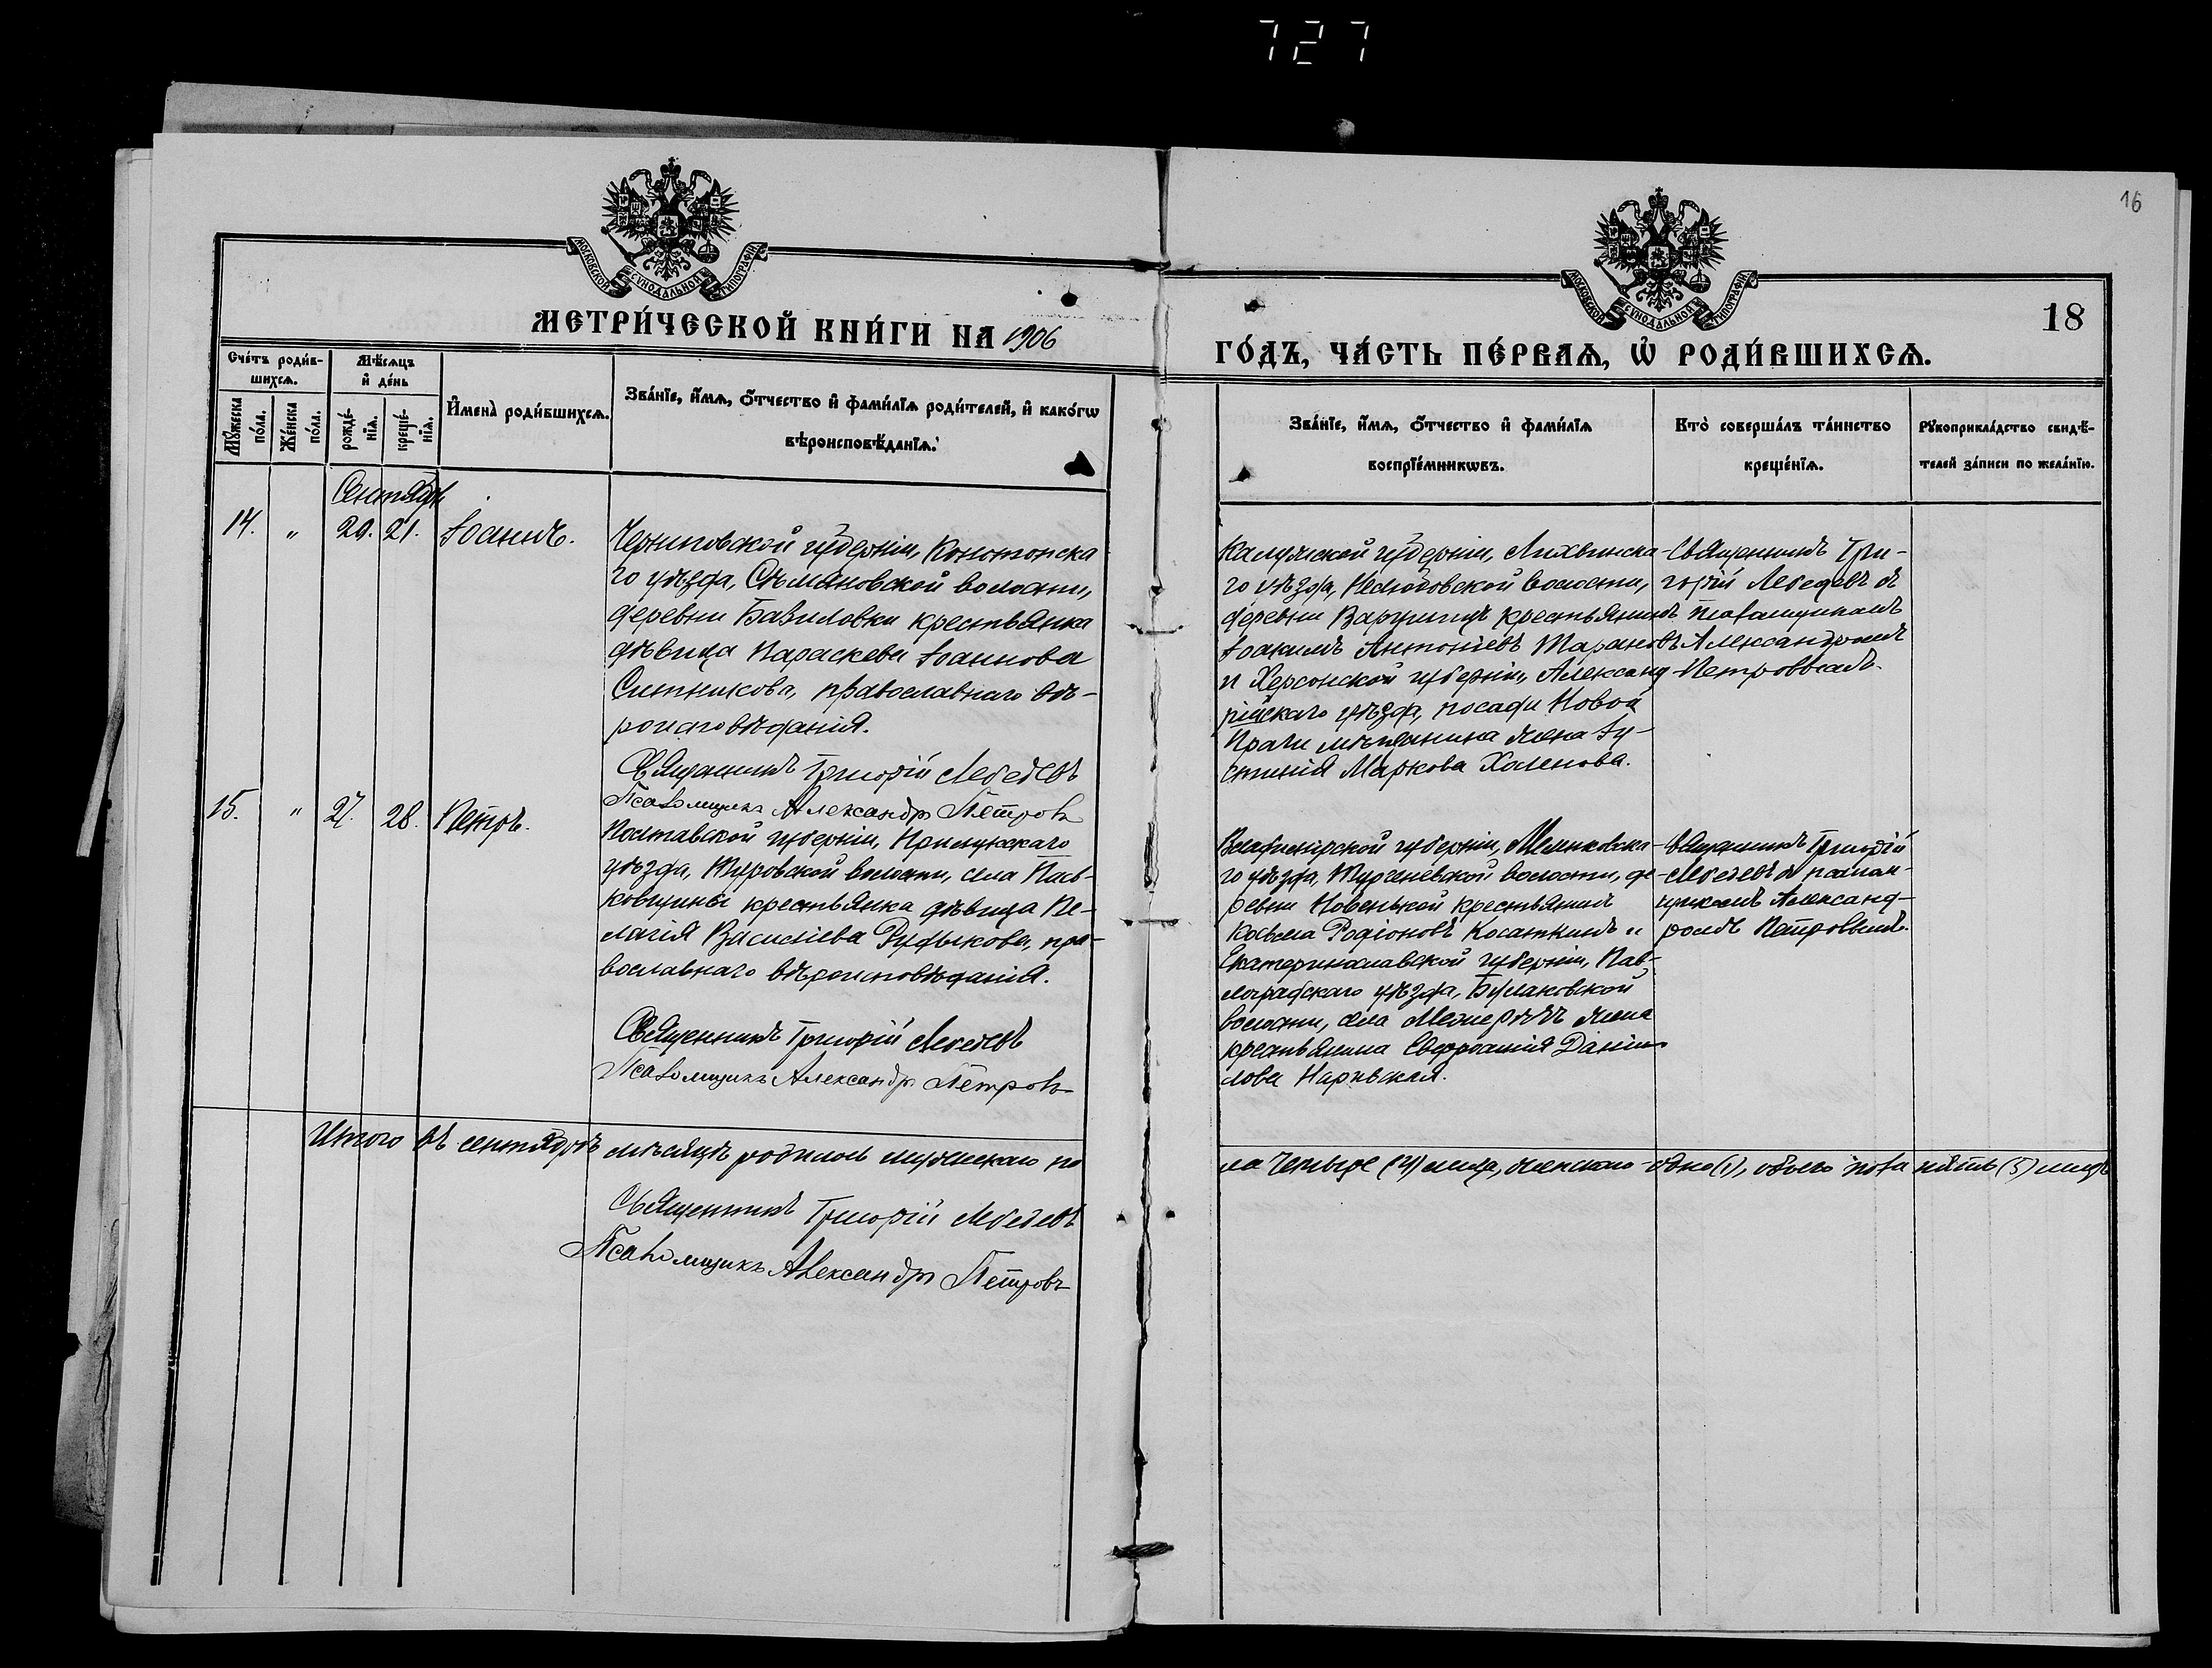 727
16
МОСКОВСКОЙ СУНОДАЛЬНОЙ ТИПОГРАФІИ
МОСКОВСКОЙ СУНОДАЛЬНОЙ ТИПОГРАФІИ
18
МЕТРИ́ЧЕСКОЙ КНИ́ГИ НА 1906
ГО́ДЪ, ЧА́СТЬ ПЕ́РВАѦ, Ѡ҆ РОДИ́ВШИХСѦ.
Сче́тъ роди́в-
шихсѧ.
Мꙋ́жеска по́ла.
Же́нска по́ла.
Мѣ́сѧцъ
и҆ де́нь
рожде́-
нїѧ.
креще́-
нїѧ.
И҆мена̀ роди́вшихсѧ.
Зва́нїе, и҆́мѧ, ѻ҆́тчество и҆ фами́лїѧ роди́телей, и҆ како́гѡ
вѣроисповѣ́данїѧ.
Зва́нїе, и҆́мѧ, ѻ҆́тчество и҆ фами́лїѧ
воспрїе́мникѡвъ.
Кто̀ соверша́лъ та́инство
креще́нїѧ.
Рꙋкоприкла́дство свидѣ́-
телей за́писи по жела́нїю.
Сентябрь
14. " 20. 21. Іоаннъ.
Черниговской губерніи, Конотопска
го уѣзда, волости,
деревни крестьянка
дѣвица Параскева Іоаннова
Ситникова, православнаго вѣ-
роисповѣданія.
Священникъ Григорій Лебедевъ
Псаломщикъ Александръ Петровъ
Калужской губерніи, Лихвинска-
го уѣзда, волости,
деревни крестьянинъ
Іоакимъ Антоніевъ Тарановъ
и Херсонской губерніи, Александ-
рійскаго уѣзда, посада Новой
Праги мѣщанина жена Іу-
стинія Маркова
Священникъ Гри-
горій Лебедевъ съ
псаломщикомъ
Александромъ
Петровымъ.
15. " 27. 28. Петръ.
Полтавской губерніи, Прилукскаго
уѣзда, волости, села Пав-
ковщины крестьянка дѣвица Пе-
лагія Василіева Рудыкова, пра-
вославнаго вѣроисповѣданія.
Священникъ Григорій Лебедевъ
Псаломщикъ Александръ Петровъ
Владимірской губерніи, Меленковска-
го уѣзда, волости, де-
ревни Новенькой крестьянинъ
Косьма Родіоновъ Косаткинъ и
Екатеринославской губерніи, Пав-
лоградскаго уѣзда, Булаховской
волости, села Межеричъ жена
крестьянина Евфросинія Даніи-
лова
Священникъ Григорій
Лебедевъ съ псалом-
щикомъ Александ-
ромъ Петровымъ.
Итого въ сентябрѣ мѣсяцѣ родилось мужескаго по
ла четыре (4) лица, женскаго одно (1), обоего пола пять (5) лицъ
Священникъ Григорій Лебедевъ
Псаломщикъ Александръ Петровъ